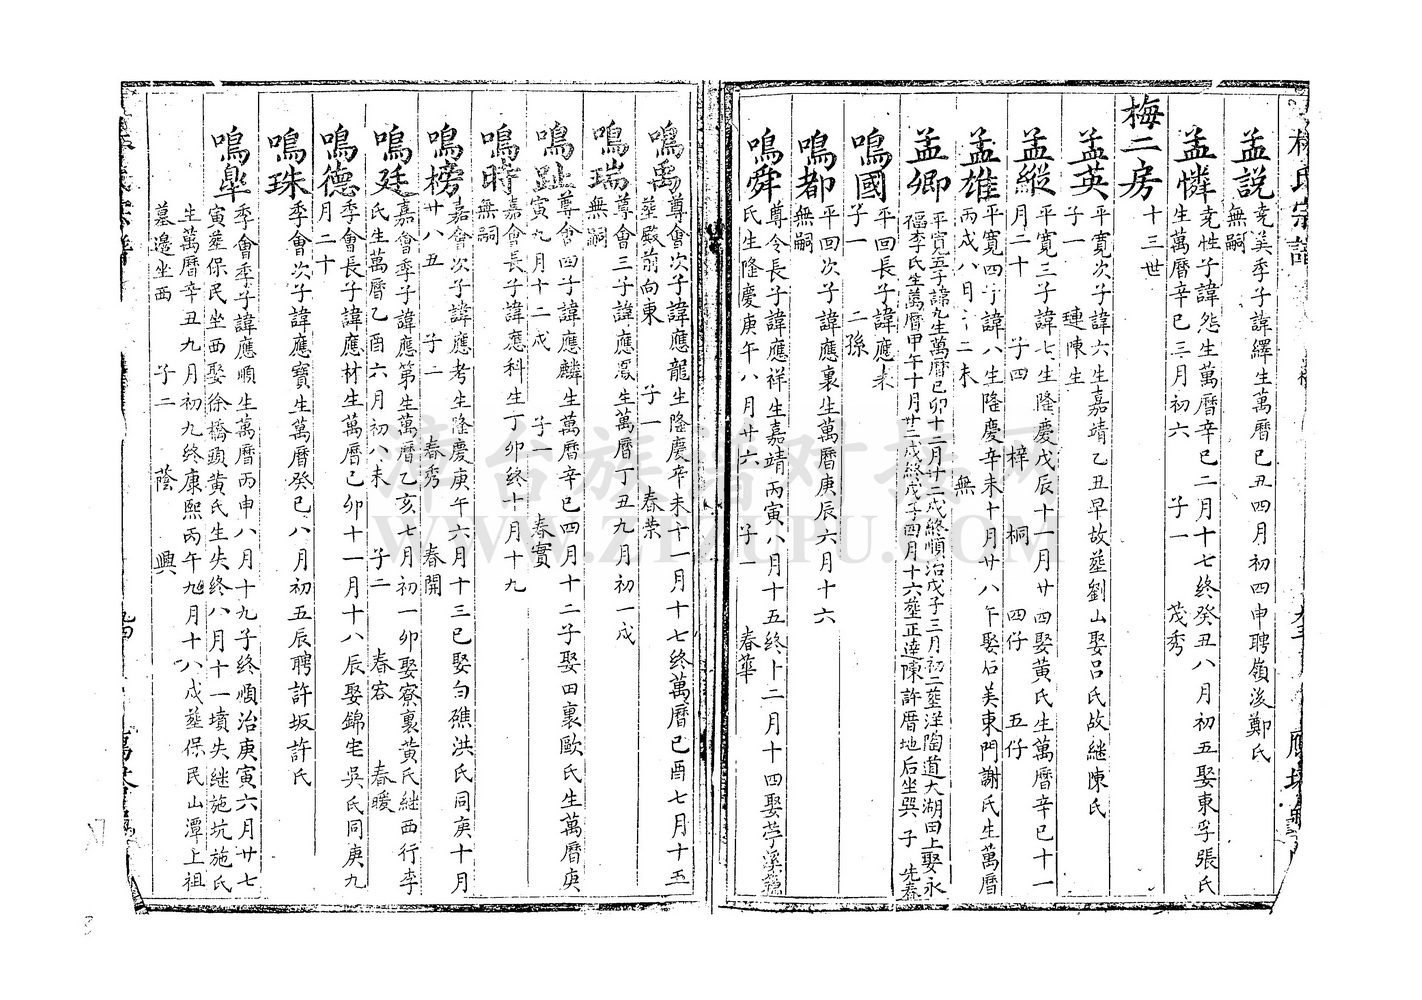 氏宗譜
孟說
堯美季子諱繹生萬曆己丑四月初四申聘嶺後鄭氏
無嗣
孟憐
堯性子諱怨生萬曆辛巳二月十七終癸丑八月初五娶東孚張氏
生萬曆辛巳三月初六 子一 茂秀
十三世
梅二房
孟英
平寬次子諱六生嘉靖乙丑早故塟劉山娶呂氏故繼陳氏
子一 璉陳生
孟縱
平寬三子諱七生隆慶戊辰十一月廿四娶黃氏生萬曆辛巳十一
月二十 子四 梓 桐 四仔 五仔
孟雄
平寬四子諱八生隆慶辛未十月廿八午娶石美東門謝氏生萬曆
丙戌八月 二未 無
孟卿
平寬五子諱九生萬曆己卯十二月廿二戌終順治戊子三月初二塟洋陶道大湖田上娶永
福李氏生萬曆甲午十月廿二戌終戊子四月十六塟正達陳許厝地后坐巽 子 先春
鳴國
平回長子諱應未
子一 二孫
鳴都
平回次子諱應裏生萬曆庚辰六月十六
無嗣
鳴舜
尊令長子諱應祥生嘉靖丙寅八月十五終十二月十四娶苧溪
氏生隆慶庚午八月廿六 子一 春華
鳴禹
尊會次子諱應龍生隆慶辛未十一月十七終萬曆己酉七月十五
塟殿前向東 子一 春荣
鳴瑞
尊會三子諱應鳳生萬曆丁丑九月初一戌
無嗣
鳴趾
尊會四子諱應麟生萬曆辛巳四月十二子娶田裏歐氏生萬曆庚
寅九月十二戌 子一 春實
鳴時
嘉會長子諱應科生丁卯終十月十九
無嗣
鳴榜
嘉會次子諱應考生隆慶庚午六月十三巳娶白礁洪氏同庚十月
廿八五 子二 春秀 春開
鳴廷
嘉會季子諱應第生萬曆乙亥七月初一卯娶寮裏黃氏繼西行李
氏生萬曆乙酉六月初八未 子二 春容 春暖
鳴德
季會長子諱應材生萬曆己卯十一月十八辰娶錦宅吳氏同庚九
月二十
鳴珠
季會次子諱應寶生萬曆癸巳八月初五辰聘許坂許氏
鳴皐
季會季子諱應順生萬曆丙申八月十九子終順治庚寅六月廿七
寅塟保民坐西娶徐橋頭黃氏生失終八月十一墳失繼施坑施氏
生萬曆辛丑九月初九終康熙丙午九月十八戌塟保民山潭上祖
墓邊坐西 子二 蔭 興
漳台族谱对接网
WWW.ZIZUPU.COM